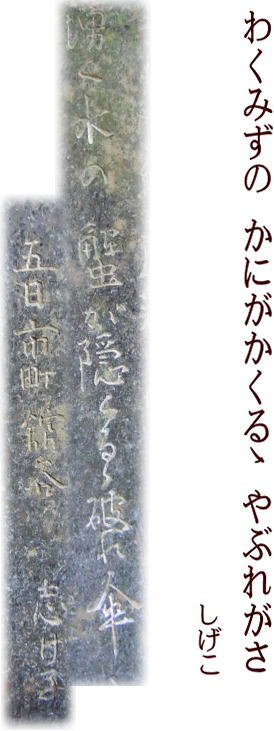 わくみずの かにがかくるゝ やぶれがさ
しげこ
湧く水の 蟹が隠くるゝ 破れ傘
五日市町 舘谷 志げ子